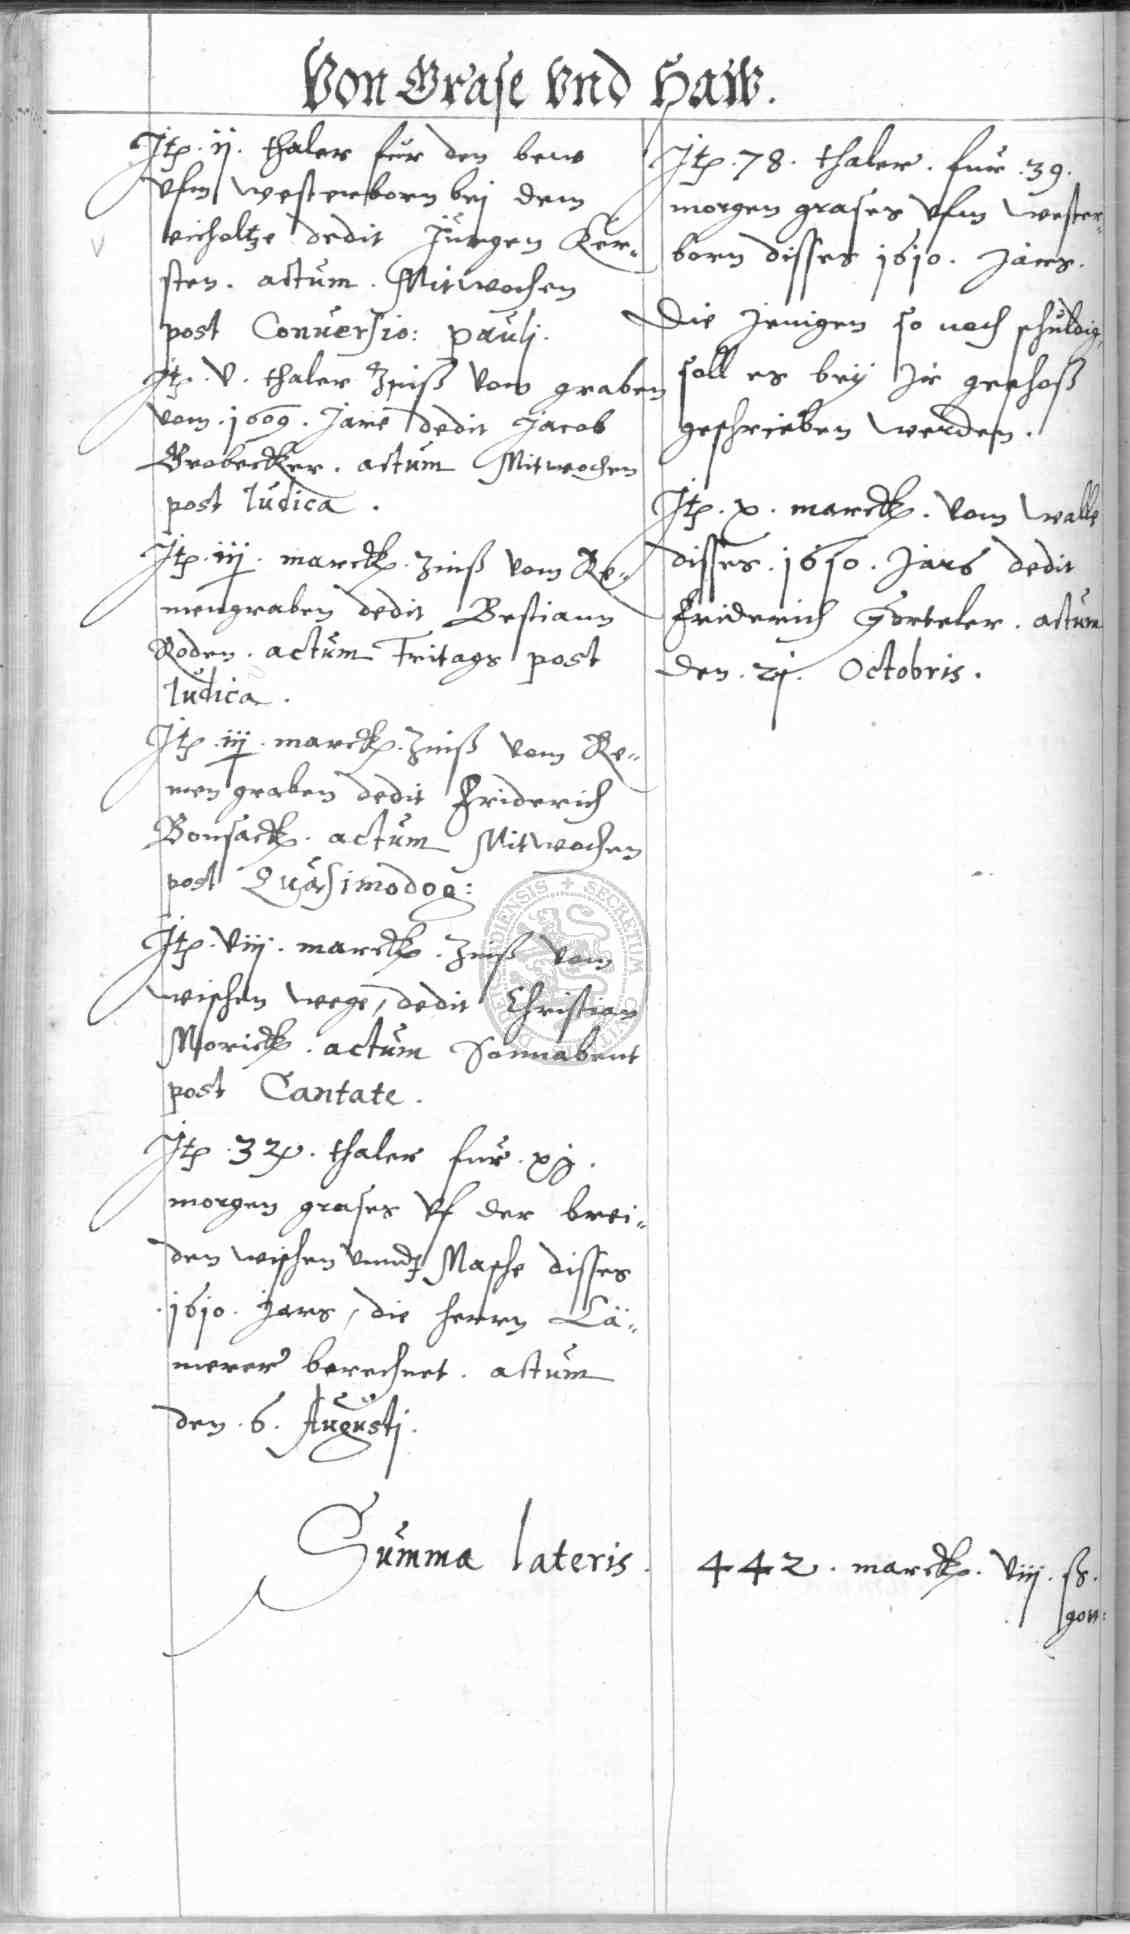 Von Grase vnd Haw.
Itp. ij. thaler fur den bew
vfm westerborn bej dem
eicholtze dedit Jurgen Ker-
sten. actum. Mitwochen
post Conuersio: pauli.
Itp. v. thaler Zinß vom graben
vom. 1609. Jare dedit Jacob
Brobecker. actum Mitwochen
post Iudica.
Itp. iij. marck. Zinß vom Re-
mengraben dedit Bestiann
Roden. actum Fritags post
Iudica.
Itp. iij. marck. Zinß vom Re-
men graben dedit Friderich
Bonsack. actum Mitwochen
post Quasimodog:
Itp. viij. marck. Zinß vom
wischen wege, dedit Christian
Morick. actum Sonnabent
post Cantate.
Itp. thaler fur
morgen grases vf der brei-
den wischen vnnd Masche disses
1610. Jars, die herrn Cä-
merer berechnet. actum
den. 6. Augusti.
Itp. 78. thaler. fur. 39.
morgen grases vfm wester-
born disses 1610. Jars.
Die jenigen so noch schuldig,
soll es bey Jr geschoß
geschrieben werden.
Itp. x. marck. vom walle
disses. 1610. Jars dedit
Friderich Gorteler. actum
den. Octobris.
Summa lateris. 442. marck. viij. ß.
gon: